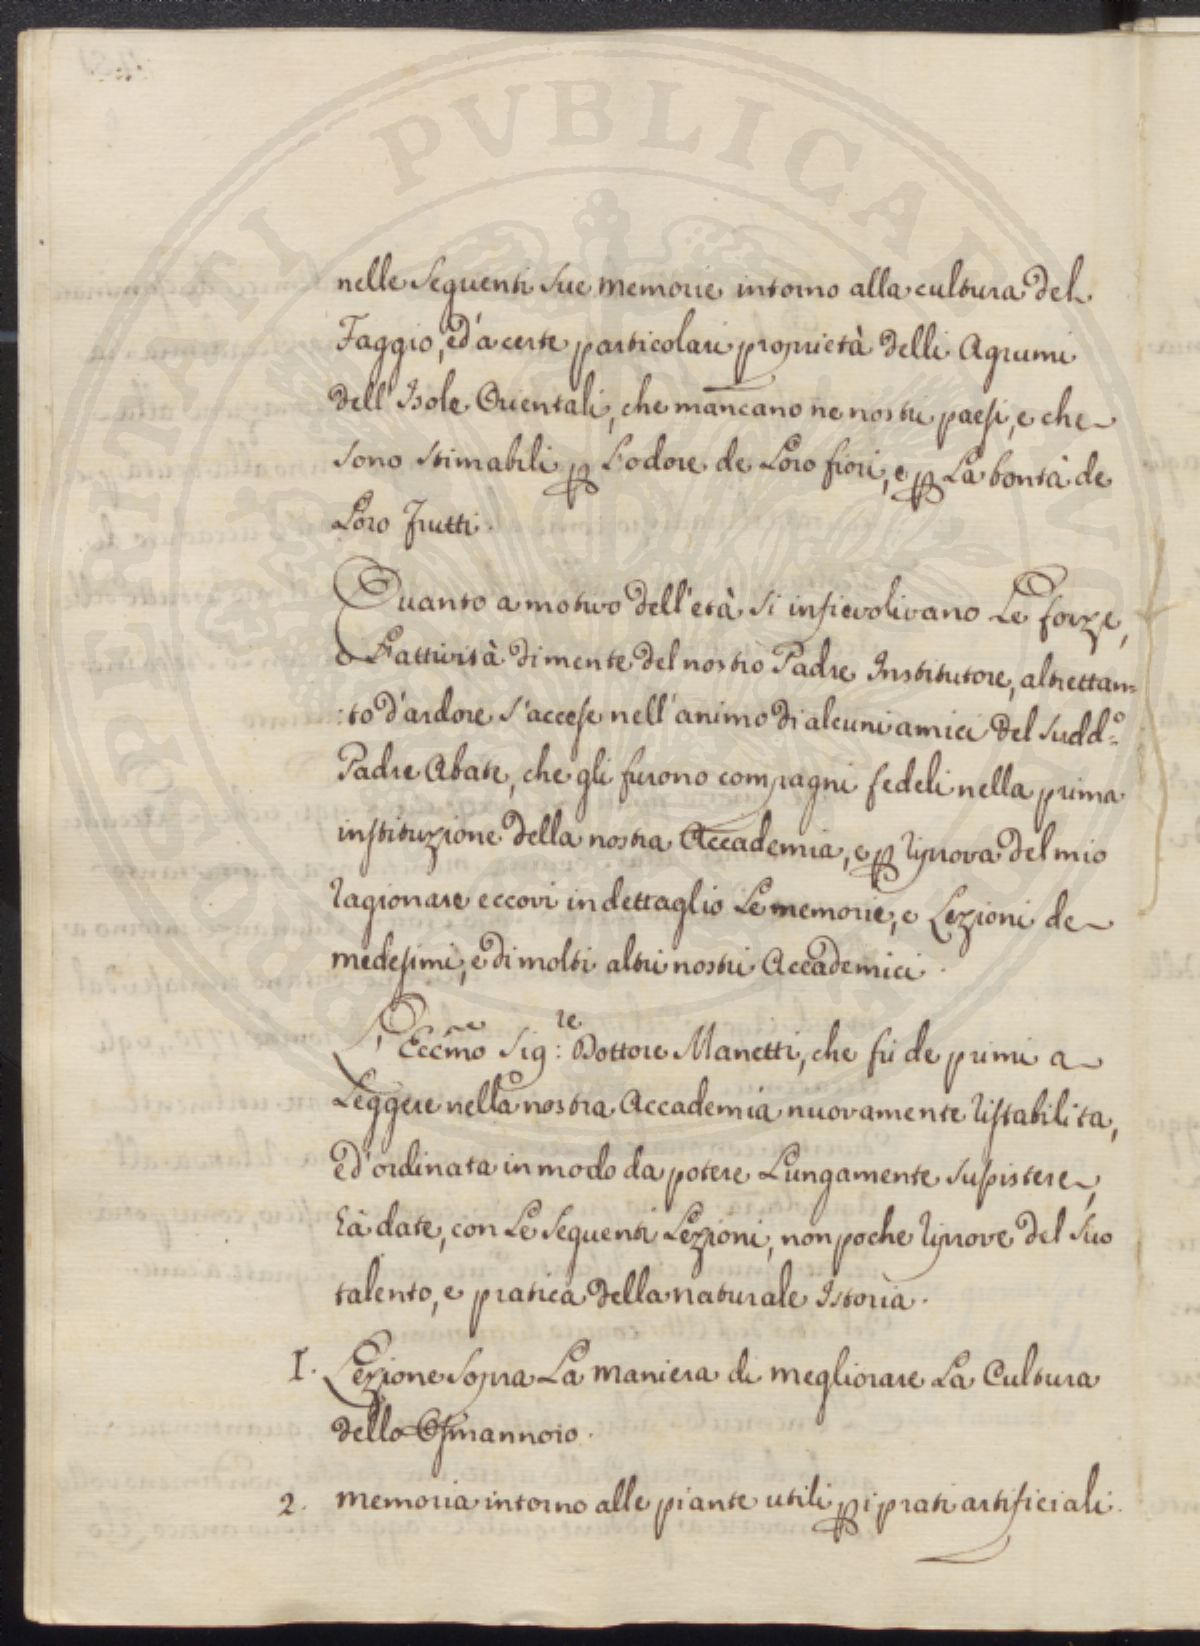 nelle seguenti sue memorie intorno alla cultura del
Faggio, ed'a certe particolari proprietà delli Agrumi
dell'Isole Orientali, che mancano ne nostri paesi, e che
sono stimabili p l'odore de Loro fiori, e p La bontà de
Loro frutti.
Quanto a motivo dell'età si infievolivano Le forze,
e L'attività di mente del nostro Padre Institutore, altrettan=
:to d'ardore s'accese nell'animo di alcuni amici del sudd:o
Padre Abate, che gli furono compagni fedeli nella prima
instituzione della nostra Accademia, e p riprova del mio
ragionare eccovi in dettaglio Le memorie, e Lezioni de
medesimi, e di molti altri nostri Accademici.
L'Eccmo Sig:re Dottore Manetti, che fù de primi a
Leggere nella nostra Accademia nuovamente ristabilita,
ed'ordinata in modo da potere Lungamente sussistere,
hà date, con Le seguenti Lezioni, non poche riprove del suo
talento, e pratica della naturale Istoria.
1. Lezione sopra La maniera di megliorare La Cultura
dello Osmannoio.
2. memoria intorno alle piante utili p i prati artificiali.
PROSPERITATI PVBLICAE